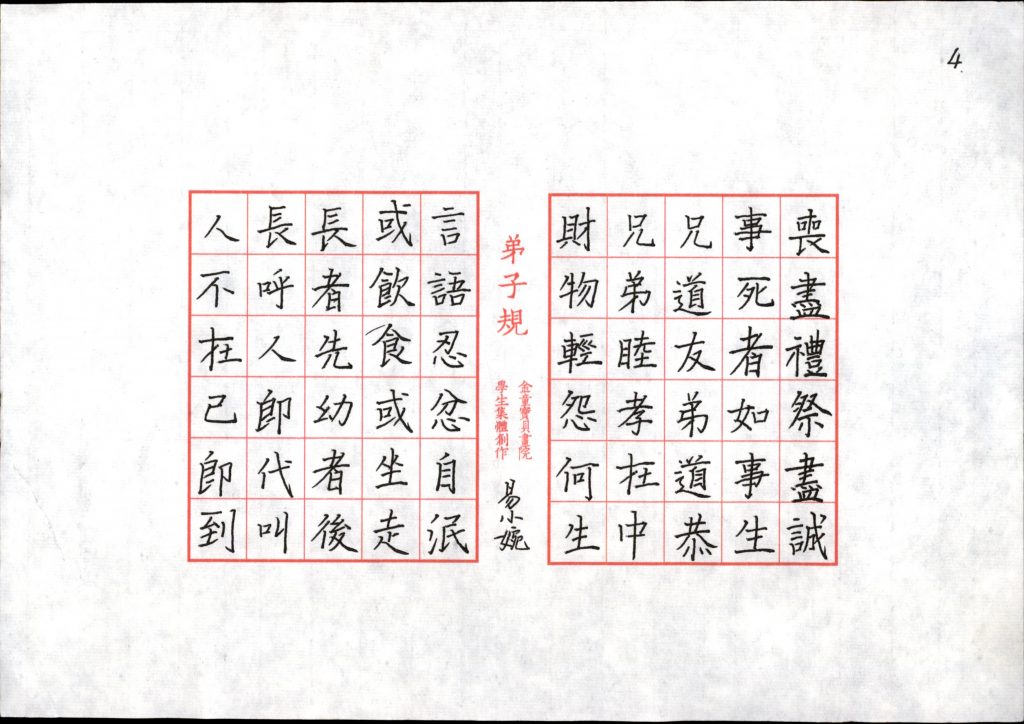 4
喪盡禮祭盡誠
事死者如事生
兄道友弟道恭
兄弟睦孝在中
財物輕怨何生
弟子規
金童寶貝畫院
學生集體創作
易小婉
言語忍忿自泯
或飲食或坐走
長者先幼者後
長呼人即代叫
人不在己即到